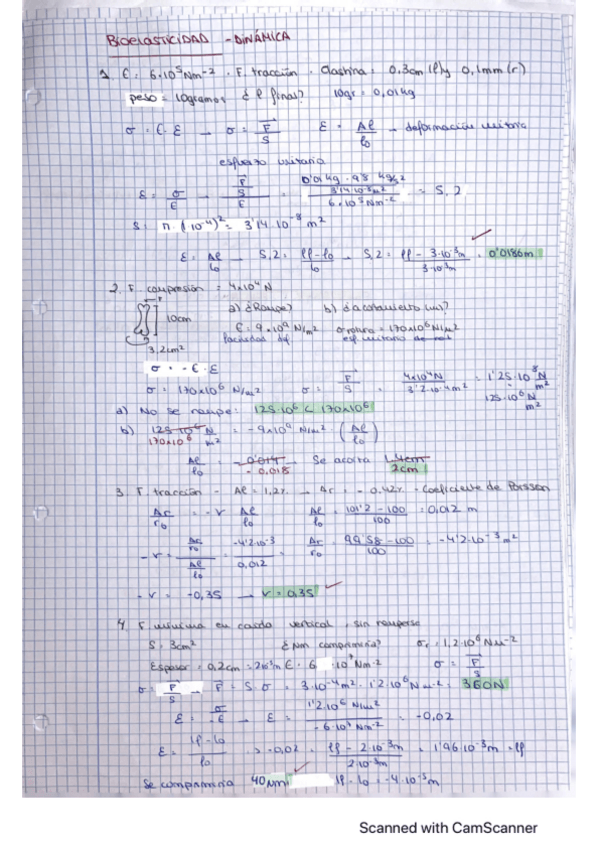 BIOELASTICIDAD - DINÁMICA
1. E = 6·10⁵ Nm⁻² · F. tracción · Elastina = 0,3cm (l₀) y 0,1mm (r)
peso = 10gramos ¿ l final? 10gr = 0,01kg
σ = E·ε → σ = F/S ε = Δl/l₀ → deformación unitaria
esfuerzo unitario
ε = σ/E → (F/S)/E = = 5,2
S = π·(10⁻⁴)² = 3'14·10⁻⁸ m²
ε = Δl/l₀ 5,2 = (lf - l₀)/l₀ → 5,2 = (lf - 3·10⁻³m)/(3·10⁻³m) = 0'0186m
2. F. compresión = 4x10⁴N
a) ¿Rompe? b) ¿acortamiento (m)?
10cm
E = 9·10⁹ N/m² σ rotura = 170x10⁶ N/m²
3,2cm²
σ = -E·ε
σ = 170x10⁶ N/m² σ = F/S = 4x10⁴N/(3'2·10⁻⁴m²) = 1'25·10⁸ N/m²
125·10⁶ N/m²
a) No se rompe: 125·10⁶ < 170x10⁶
b) 125·10⁶ N/m² = -9x10⁹ N/m² (Δl/l₀)
170x10⁶
Δl/l₀ = -0'014 Se acorta 1,4cm
-0,018 2cm
3. F. tracción → Δl = 1,2%. → Δr = -0,42%. - Coeficiente de Poisson
Δr/r₀ = -ν Δl/l₀ Δl/l₀ = (101'2 - 100)/100 = 0,012 m
-ν = (Δr/r₀)/(Δl/l₀) = -4'2·10⁻³/0,012 = Δr/r₀ = (99'58 - 100)/100 = -4'2·10⁻³ m²
-ν = -0,35 → ν = 0,35
4. F mínima en caída vertical, sin romperse
S = 3cm² ¿Nm comprimiría? σr = 1,2·10⁶ Nm⁻²
Espesor = 0,2cm = 2·10⁻³m E = 6 ·10⁷ Nm⁻² σ = F/S
σ = F/S → F = S·σ = 3·10⁻⁴m² · 1'2·10⁶ Nm⁻² = 360N
ε = σ/-E → ε = 1'2·10⁶ N/m²/-6·10⁷ Nm⁻² = -0,02
ε = (lf - l₀)/l₀ → -0,02 = (lf - 2·10⁻³m)/(2·10⁻³m) = 1'96·10⁻³m = lf
Se comprimiría 40 Nm lf - l₀ = -4·10⁻⁵m
Scanned with CamScanner